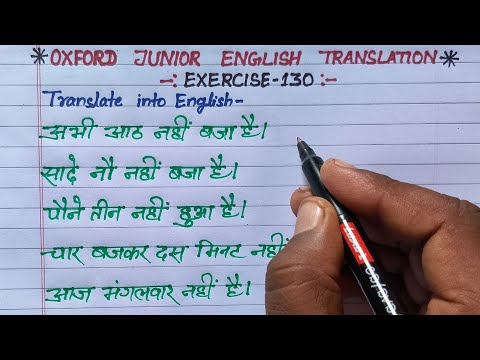 *OXFORD JUNIOR ENGLISH TRANSLATION*
-: EXERCISE-130 :-
Translate into English-
अभी आठ नहीं बजा है।
साढ़े नौ नहीं बजा है।
पौने तीन नहीं हुआ है।
चार बजकर दस मिनट नहीं
आज मंगलवार नहीं है।